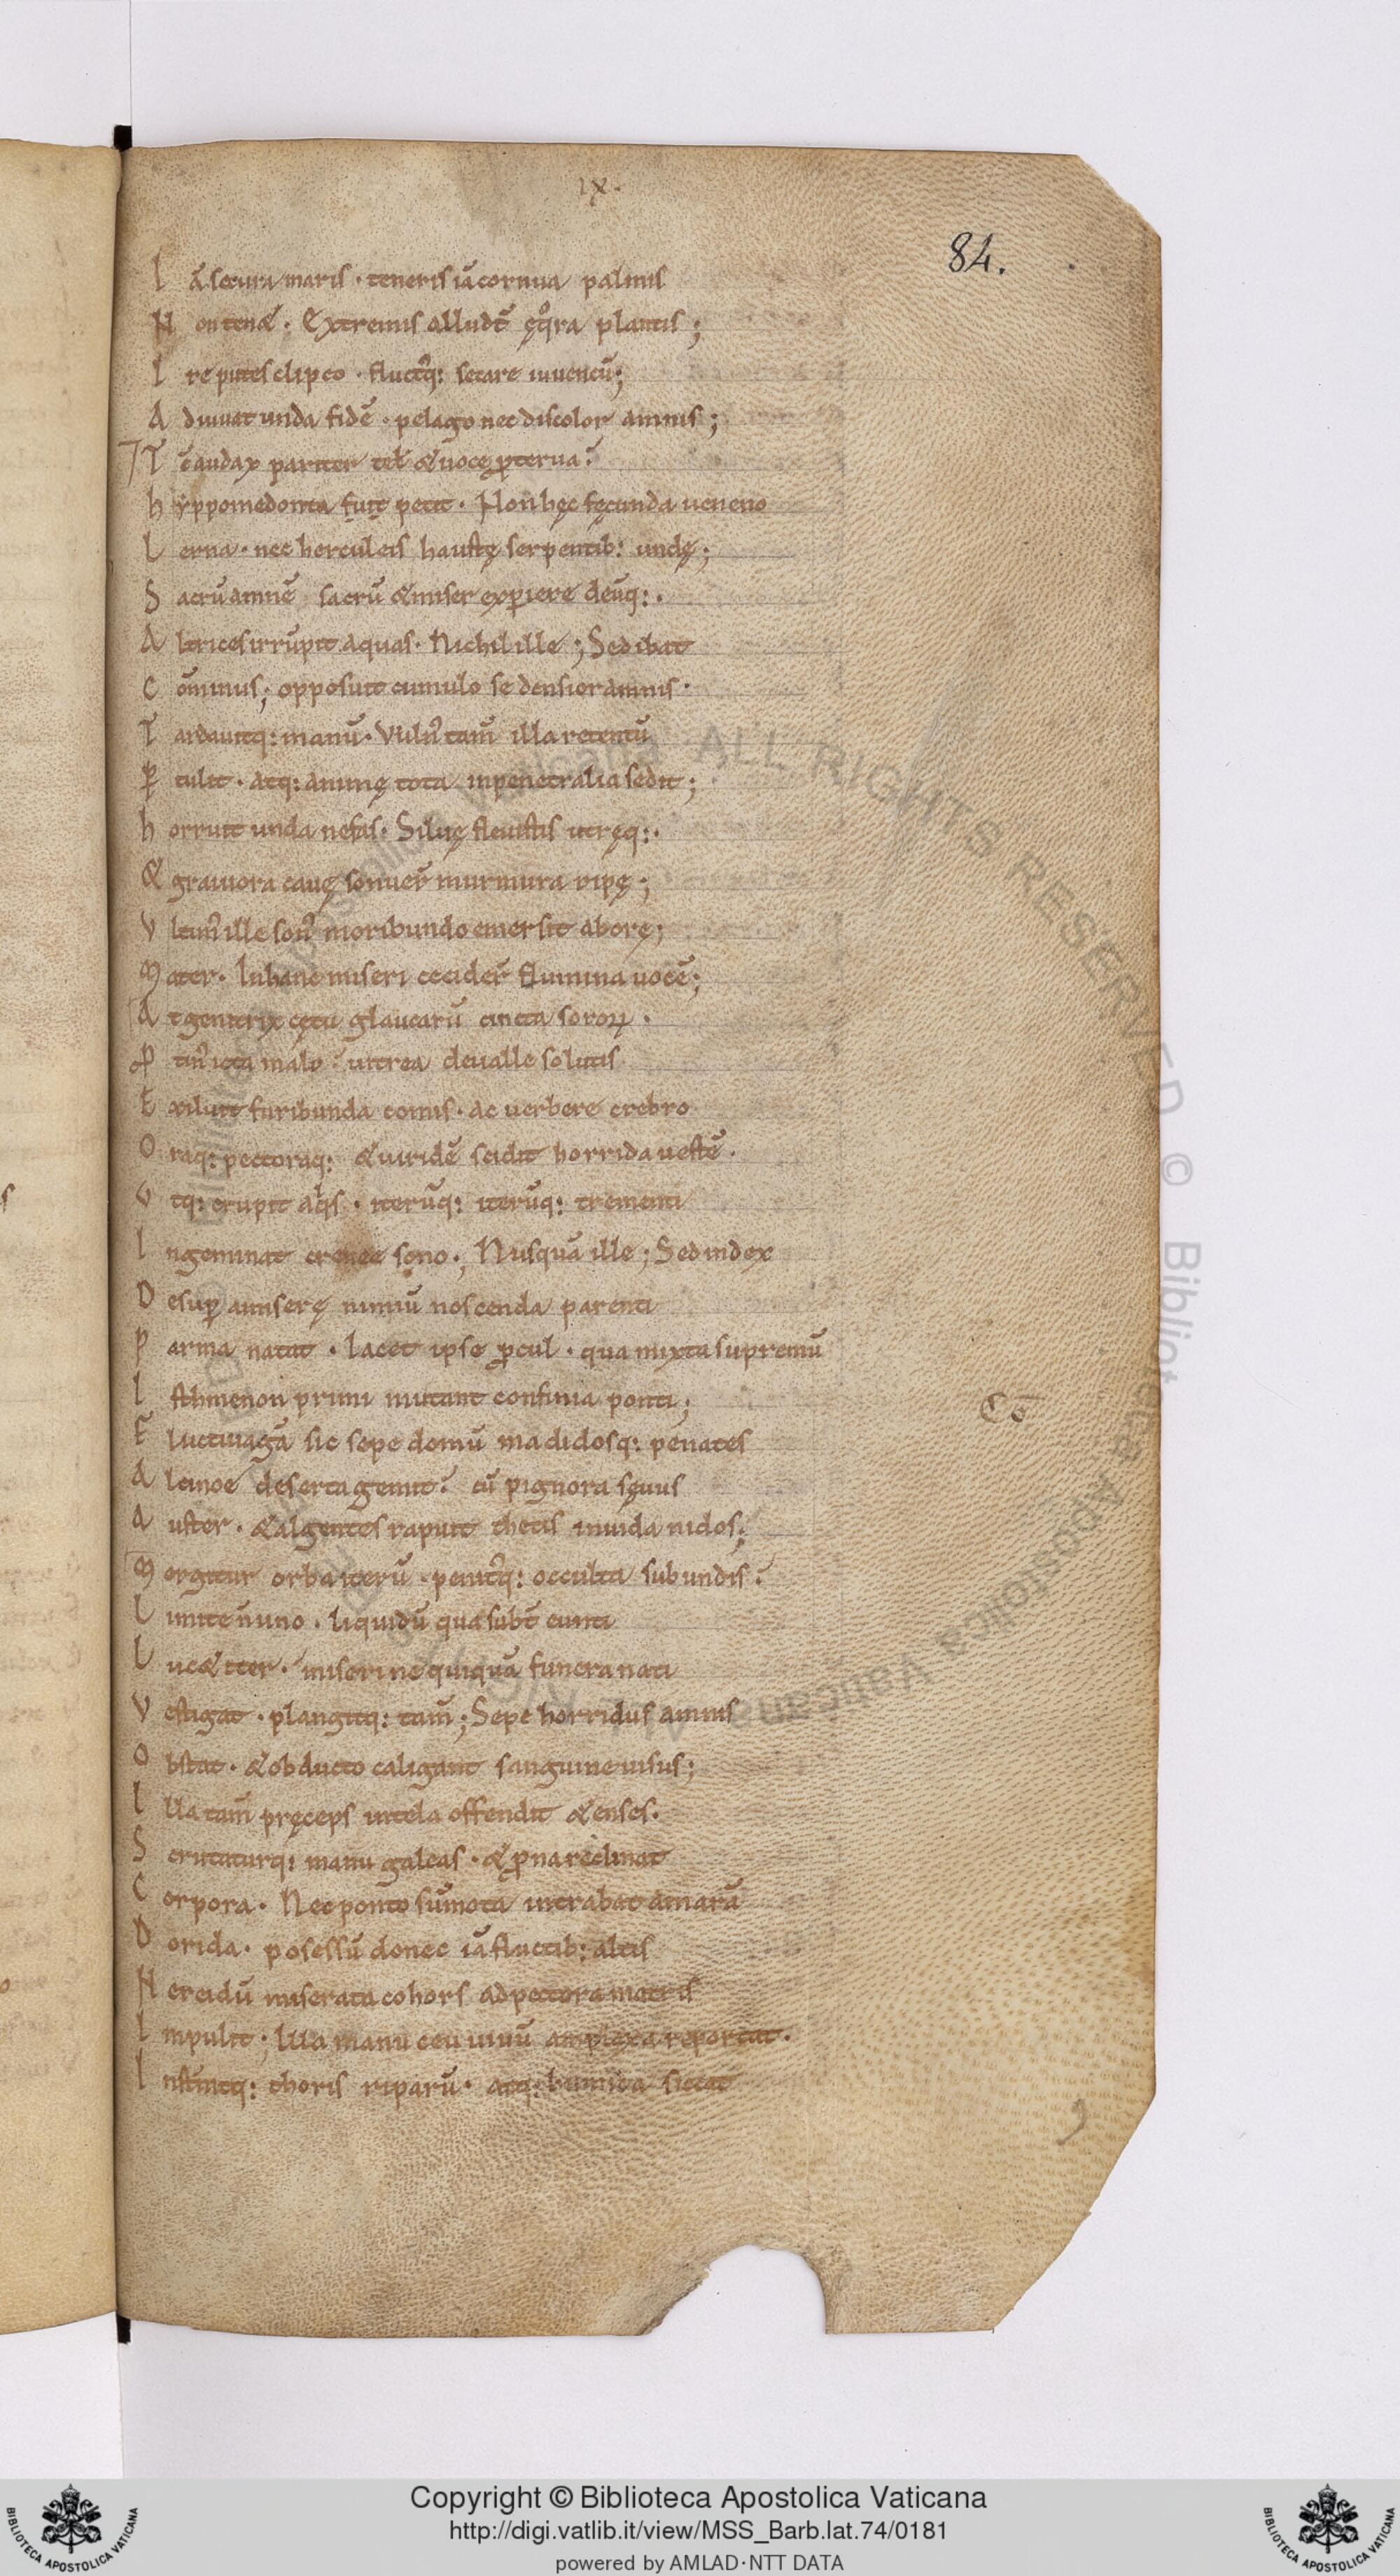 ıx.
84.
I ā secura maris · teneris iā cornua palmis
N on tenet · Extremis alludt̄ ęqͦra plantis ;
I re putes clipeo · fluctꝰq: secare iuuencū;
A diuuat unda fidē · pelago nec discolor amnis ;
T c̄ audax pariter tel' & uocę ꝓterua:
h yppomedonta fuit petit · Non hęc fęcunda ueneno
L erna · nec herculeis haustę serpentib: undę ;
S acrū amnē sacrū & miser exꝑiere deūq: .
A ltrices irrūpit aquas · Nichil ille ; Sed ibat
C ōminus ; opposuit cumulo se densior amnis ·
T ardauitq: manū · Vulnꝰ tam̄ illa retentū
P tulit · atq: animę tota inpenetralia sedit ;
h orruit unda nefas · Siluę fleuistis utręq: .
& grauiora cauę sonuer̄ murmura ripę ;
V ltimꝰ ille sonꝰ moribundo emersit ab orę ;
M ater · In hanc miseri cecider̄ flumina uocē ;
A t genitrix cętu glaucarū cincta soroꝝ ·
P tinꝰ icta malo · uitrea de ualle solutis
E xiluit furibunda comis · ac uerbere crebro
O raq: pectoraq: & uiridē scidit horrida uestē ·
V tq: erupit aq̍s · iterūq: iterūq: trementi
I ngeminat crenee sono ·; Nusquā ille ; Sed index
D esuꝑ amisere nimiū noscenda parenti
P arma natat · Iacet ipse ꝓcul · qua mixta supremū
I sthmenon primi mutant confinia ponti ;
F luctiuagā sic sepe domū madidosq: penates
A lcinoe deserta gemit: cū pignora sęuus
A uster · & algentes rapuit thetis inuida nidos ;
M ergitur orba iterū · penitꝰq: occulta sub undis :
L imite n̄ uno · liquidū qua subt̄ eunti
L ucet iter · miseri nequiquā funera nati
V estigat · plangitq: tam̄ ; Sepe horridus amnis
O bstat · & obducto caligant sanguine uisus ;
I lla tam̄ pręceps in tela offendit & enses ·
S crutaturq: manu galeas · & ꝓna reclinat
C orpora · Nec ponto sūmota intrabat amarā
D orida · posessū donec iā fluctib: altis
N ereidū miserata cohors ad pectora matris
I mpulit ; Illa manu ceu uiuū amplexa reportat ·
I nstīitq: thoris riparū · atq: humida siccat
Cō
Copyright © Biblioteca Apostolica Vaticana
http://digi.vatlib.it/view/MSS_Barb.lat.74/0181
powered by AMLAD·NTT DATA